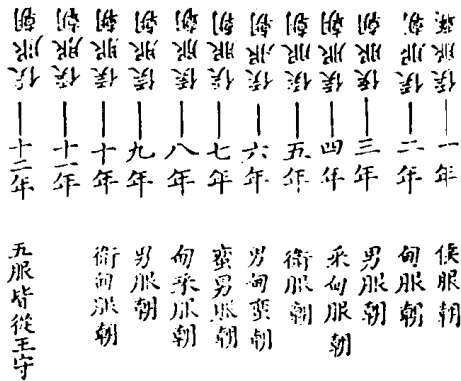 侯服朝 一年 侯服朝
侯服朝 二年 甸服朝
侯服朝 三年 男服朝
侯服朝 四年 采甸服朝
侯服朝 五年 衛服朝
侯服朝 六年 男甸蠻朝
侯服朝 七年 蠻男服朝
侯服朝 八年 甸采服朝
侯服朝 九年 男服朝
侯服朝 十年 衛甸服朝
侯服朝 十一年
侯服朝 十二年 五服皆從王守